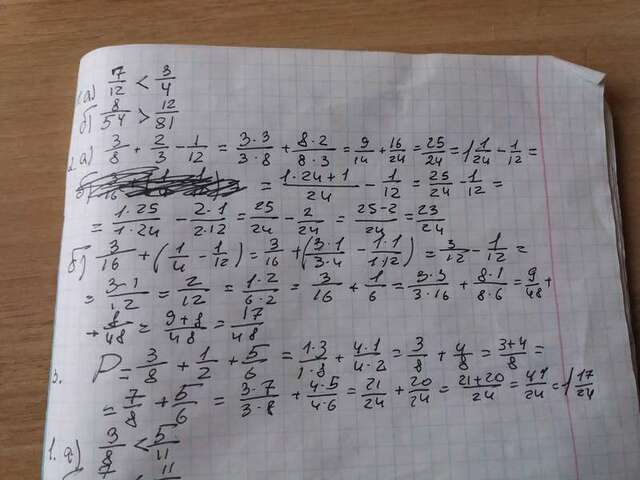 1.а) 7/12 < 3/4
б) 8/54 > 12/81
2.а) 3/8 + 2/3 - 1/12 = 3·3/3·8 + 8·2/8·3 = 9/14 + 16/24 = 25/24 = 1 1/24 - 1/12 =
= 1·24+1/24 - 1/12 = 25/24 - 1/12 =
= 1·25/1·24 - 2·1/2·12 = 25/24 - 2/24 = 25-2/24 = 23/24
б) 3/16 + (1/4 - 1/12) = 3/16 + (3·1/3·4 - 1·1/1·12) = 3/12 - 1/12 =
= 3-1/12 = 2/12 = 1·2/6·2 = 3/16 + 1/6 = 3·3/3·16 + 8·1/8·6 = 9/48 +
+ 8/48 = 9+8/48 = 17/48
3. P = 3/8 + 1/2 + 5/6 = 1·3/1·8 + 4·1/4·2 = 3/8 + 4/8 = 3+4/8 =
= 7/8 + 5/6 = 3·7/3·8 + 4·5/4·6 = 21/24 + 20/24 = 21+20/24 = 41/24 = 1 17/24
1. а) 3/8 < 5/11